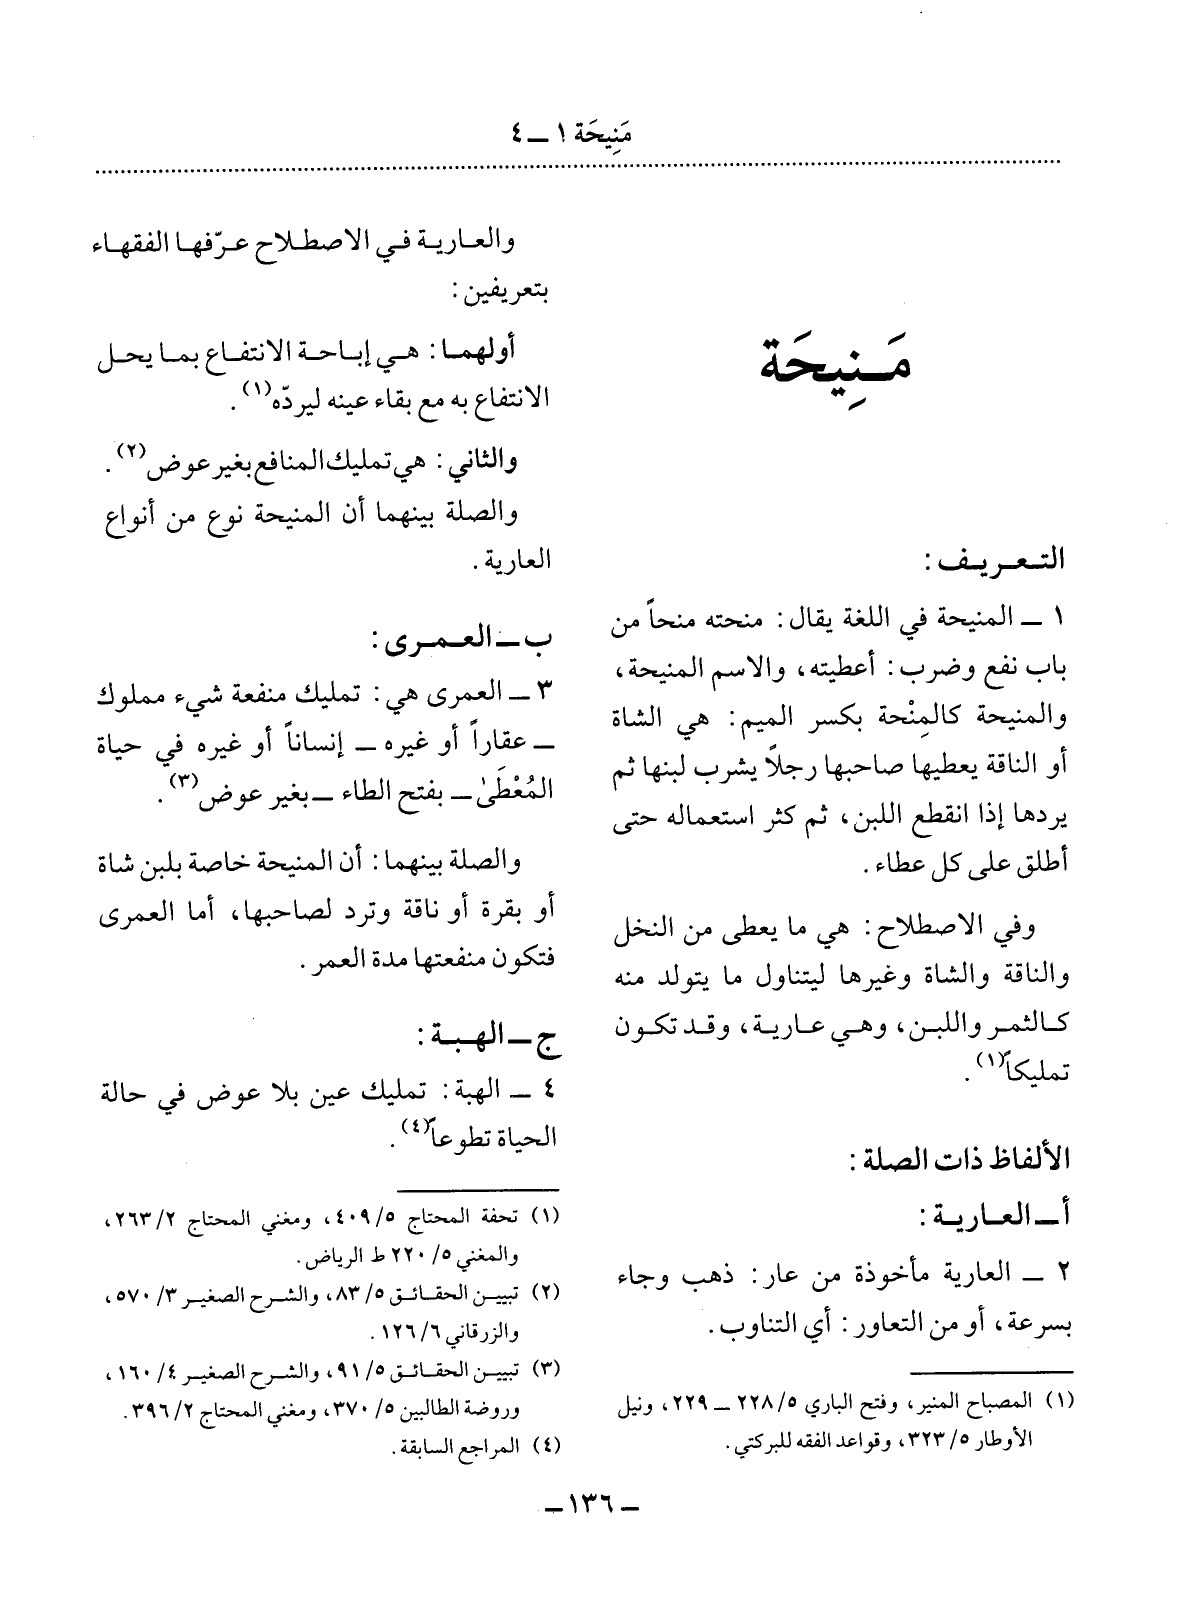 مَنِيحَة ١ ـ ٤
مَـنِيحَة
التـعـريـف :
١ ـ المنيحة في اللغة يقال : منحته منحاً من
باب نفع وضرب : أعطيته، والاسم المنيحة،
والمنيحة كالمِنْحة بكسر الميم : هي الشاة
أو الناقة يعطيها صاحبها رجلاً يشرب لبنها ثم
يردها إذا انقطع اللبن، ثم كثر استعماله حتى
أطلق على كل عطاء .
وفي الاصطلاح : هي ما يعطى من النخل
والناقة والشاة وغيرها ليتناول ما يتولد منه
كالثمر واللبن، وهي عارية، وقد تكون
تمليكاً(١) .
الألفاظ ذات الصلة :
أ ـ العـاريـة :
٢ ـ العارية مأخوذة من عار : ذهب وجاء
بسرعة، أو من التعاور : أي التناوب .
(١) المصباح المنير، وفتح الباري ٥/ ٢٢٨ ـ ٢٢٩، ونيل
الأوطار ٥/ ٣٢٣، وقواعد الفقه للبركتي .
والعارية في الاصطلاح عرّفها الفقهاء
بتعريفين :
أولهما : هي إباحة الانتفاع بما يحل
الانتفاع به مع بقاء عينه ليردّه(١) .
والثاني : هي تمليك المنافع بغير عوض(٢) .
والصلة بينهما أن المنيحة نوع من أنواع
العارية .
ب ـ العـمـرى :
٣ ـ العمرى هي : تمليك منفعة شيء مملوك
ـ عقاراً أو غيره ـ إنساناً أو غيره في حياة
المُعْطَىٰ ـ بفتح الطاء ـ بغير عوض(٣) .
والصلة بينهما : أن المنيحة خاصة بلبن شاة
أو بقرة أو ناقة وترد لصاحبها، أما العمرى
فتكون منفعتها مدة العمر .
ج ـ الهـبـة :
٤ ـ الهبة : تمليك عين بلا عوض في حالة
الحياة تطوعاً(٤) .
(١) تحفة المحتاج ٥/ ٤٠٩، ومغني المحتاج ٢/ ٢٦٣،
والمغني ٥/ ٢٢٠ ط الرياض .
(٢) تبيين الحقائق ٥/ ٨٣، والشرح الصغير ٣/ ٥٧٠،
والزرقاني ٦/ ١٢٦ .
(٣) تبيين الحقائق ٥/ ٩١، والشرح الصغير ٤/ ١٦٠،
وروضة الطالبين ٥/ ٣٧٠، ومغني المحتاج ٢/ ٣٩٦ .
(٤) المراجع السابقة .
ـ ١٣٦ ـ